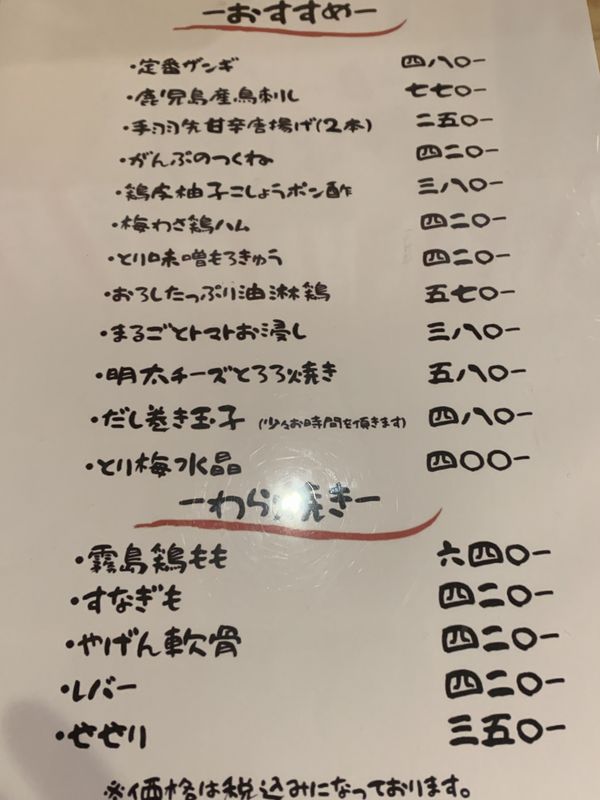 ーおすすめー
・定番ザンギ 四八〇-
・鹿児島産鳥刺し 七七〇-
・手羽先甘辛唐揚げ(2本) 二五〇-
・がんぶのつくね 四二〇-
・鶏皮柚子こしょうポン酢 三八〇-
・梅わさ鶏ハム 四二〇-
・とり味噌もろきゅう 四二〇-
・おろしたっぷり油淋鶏 五七〇-
・まるごとトマトお浸し 三八〇-
・明太チーズとろろ焼き 五八〇-
・だし巻き玉子 (少々お時間を頂きます) 四八〇-
・とり梅水晶 四〇〇-
ーわら焼きー
・霧島鶏もも 六四〇-
・すなぎも 四二〇-
・やげん軟骨 四二〇-
・レバー 四二〇-
・せせり 三五〇-
※価格は税込みになっております。